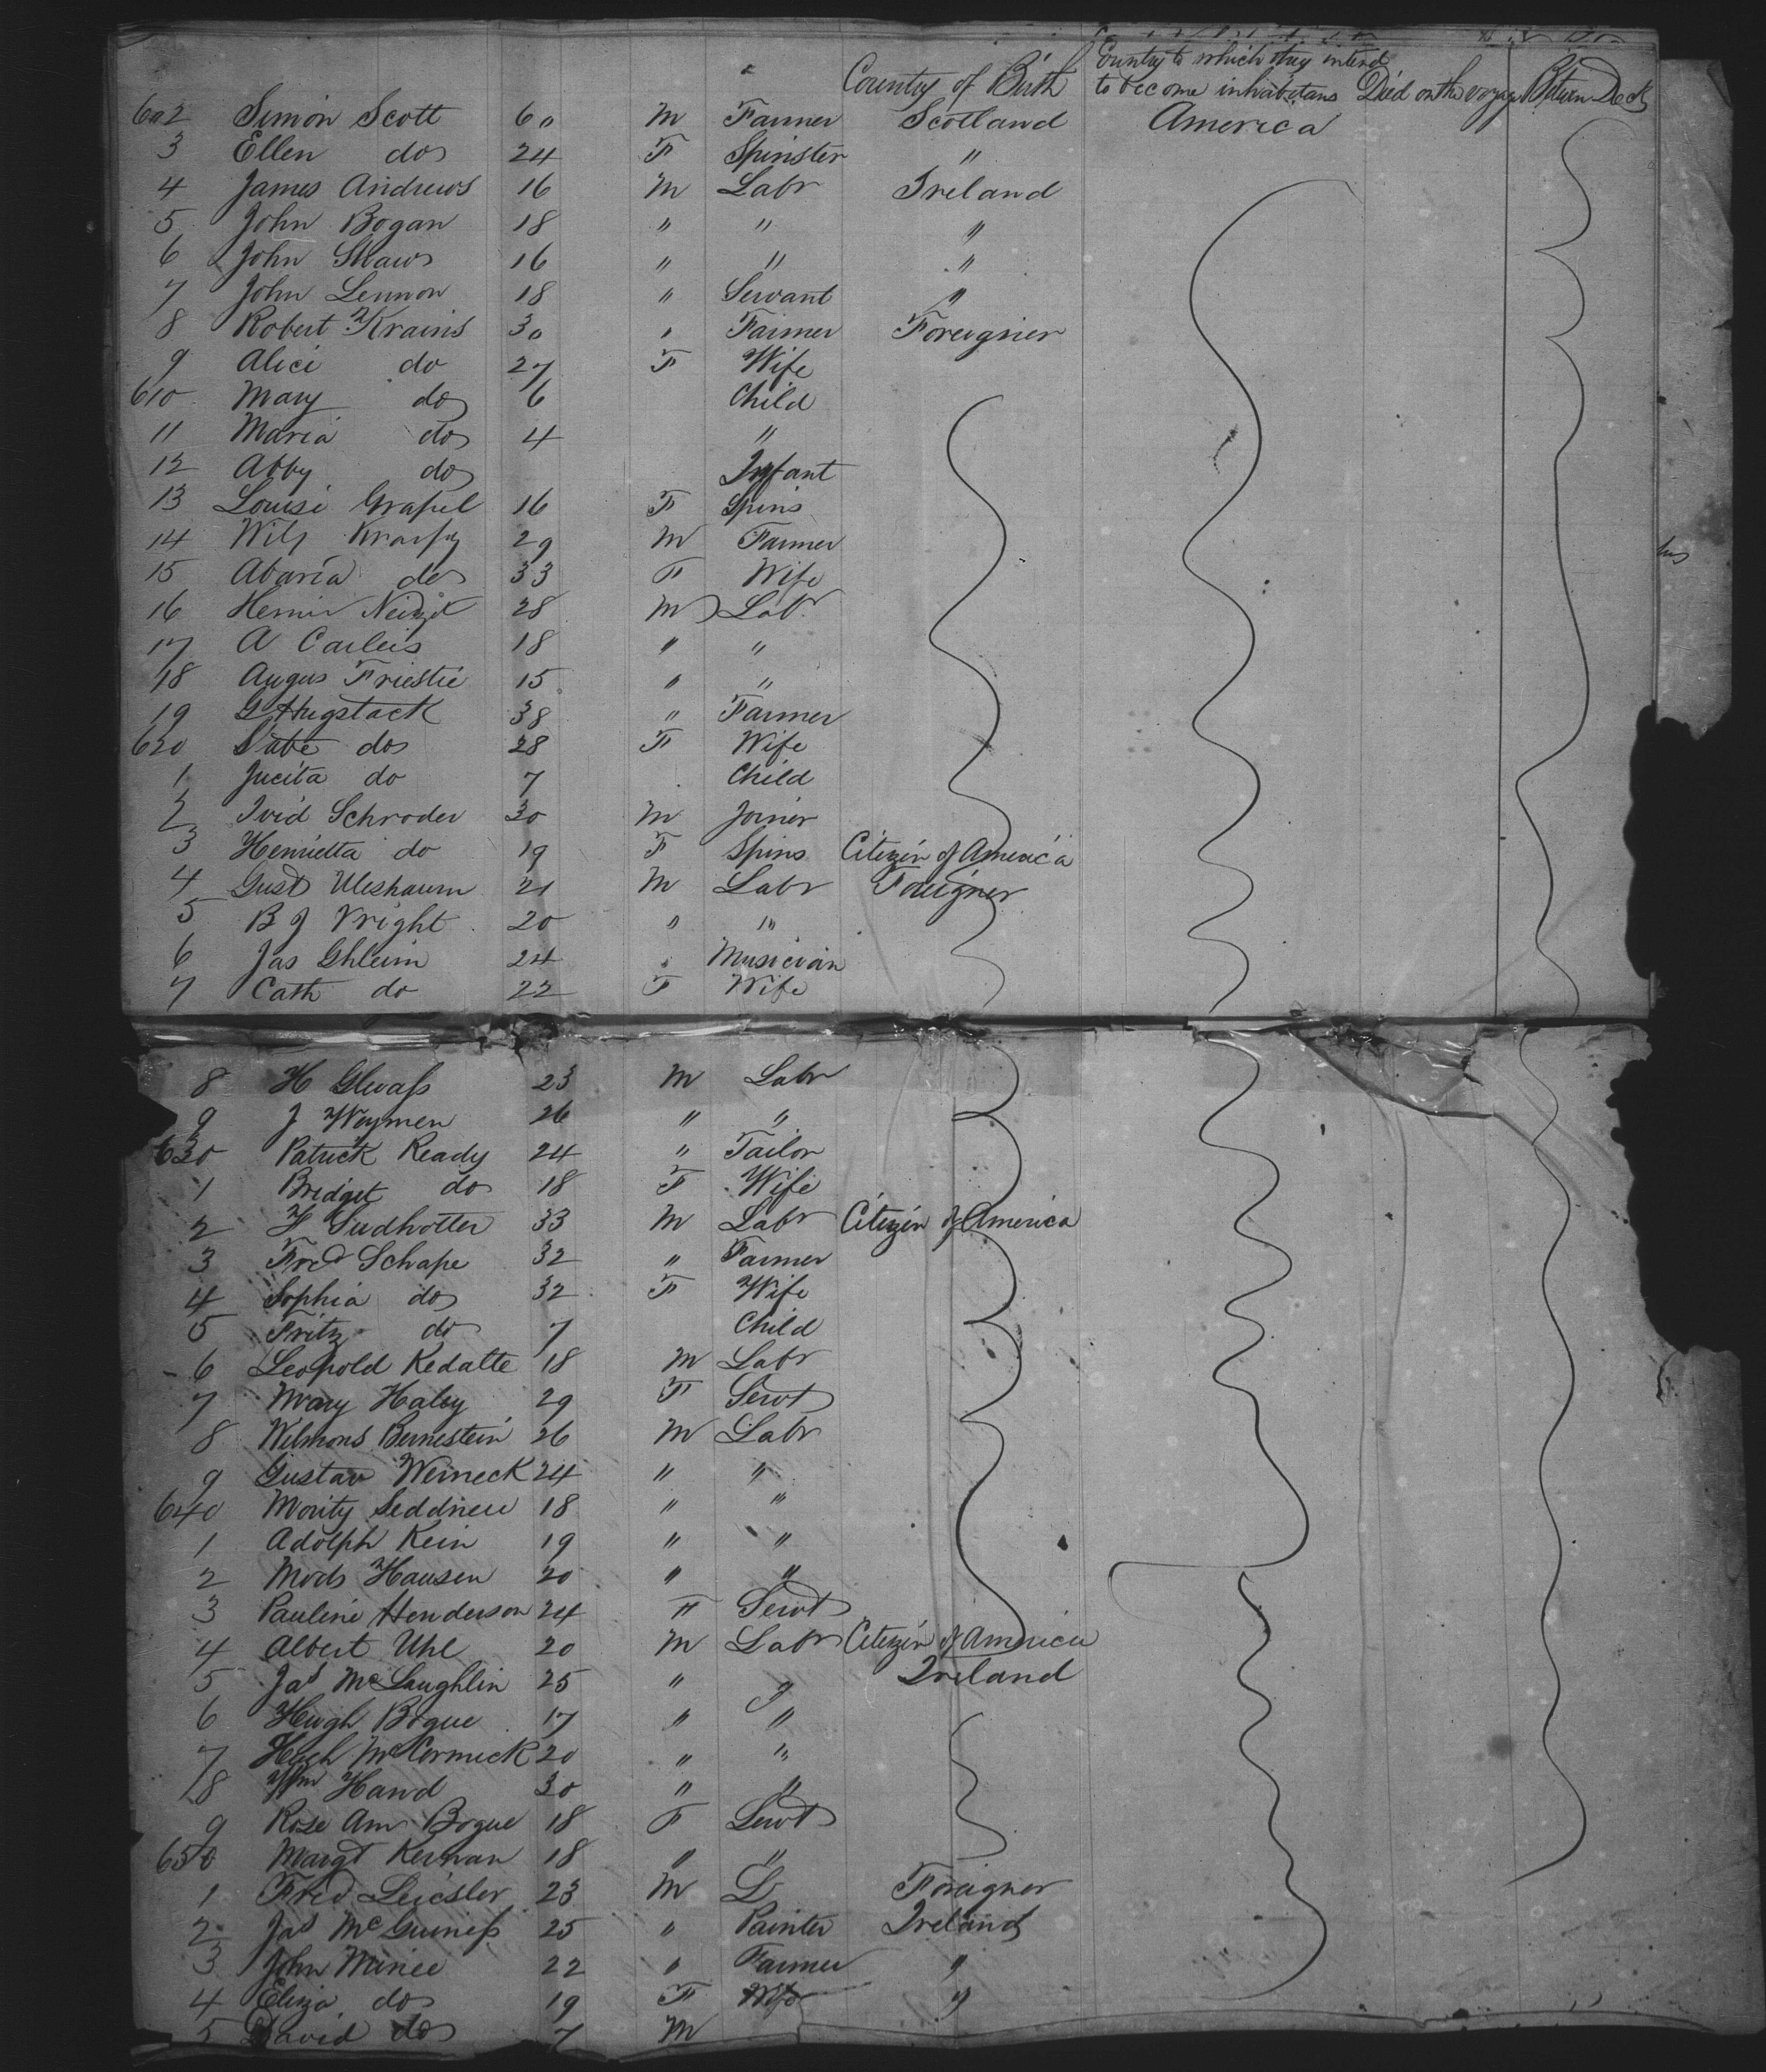 Country of Birth Country to which they intend to become inhabitans Died on the voyage Btwn Deck
602 Simon Scott 60 M Farmer Scotland America
3 Ellen do 24 F Spinster "
4 James Andrews 16 M Labr Ireland
5 John Bogan 18 " " "
6 John Shaw 16 " " "
7 John Lennon 18 " Servant "
8 Robert Krains 30 " Farmer Foreigner
9 Alice do 27 F Wife
610 Mary do 6 Child
11 Maria do 4 "
12 Abby do Infant
13 Louise Grapel 16 F Spins
14 29 M Farmer
15 Abaria do 33 F Wife
16 28 M Labr
17 A Carleis 18 " "
18 Augus Friestie 15 " "
19 G Hugstack 38 " Farmer
620 do 28 F Wife
1 Jucita do 7 Child
2 Schroder 30 M Joiner
3 Henrietta do 19 F Spins Citizen of America
4 Gust Uleshaum 21 M Labr Foreigner
5 B J Vright 20 " "
6 Jas Ghleim 24 " Musician
7 Cath do 22 F Wife
8 H 23 M Labr
9 J Weymen 26 " "
630 Patrick Ready 24 " Tailor
1 Bridget do 18 F Wife
2 H Sudhotter 33 M Labr Citizen of America
3 Fred Schape 32 " Farmer
4 Sophia do 32 F Wife
5 Fritz do 7 Child
6 Leopold Kedatte 18 M Labr
7 Mary Haley 29 F Servt
8 Wilmons Bernestein 26 M Labr
9 Gustav Weineck 24 " "
640 Mority 18 " "
1 Adolph Kein 19 " "
2 Mods Hausen 20 " "
3 Pauline Henderson 24 F Servt
4 Albert Uhl 20 M Labr Citizen of America
5 Jas McLaughlin 25 " " Ireland
6 Hugh Bogue 17 " "
7 Hugh McCormick 20 " "
8 Wm Hand 30 " "
9 Rose Ann Bogue 18 F Servt
650 Margt Kernan 18 " "
1 Fred Leicsler 23 M L Foreigner
2 Jas McGuiness 25 " Painter Ireland
3 John Minee 22 " Farmer "
4 Eliza do 19 F Wife "
5 David do 7 M